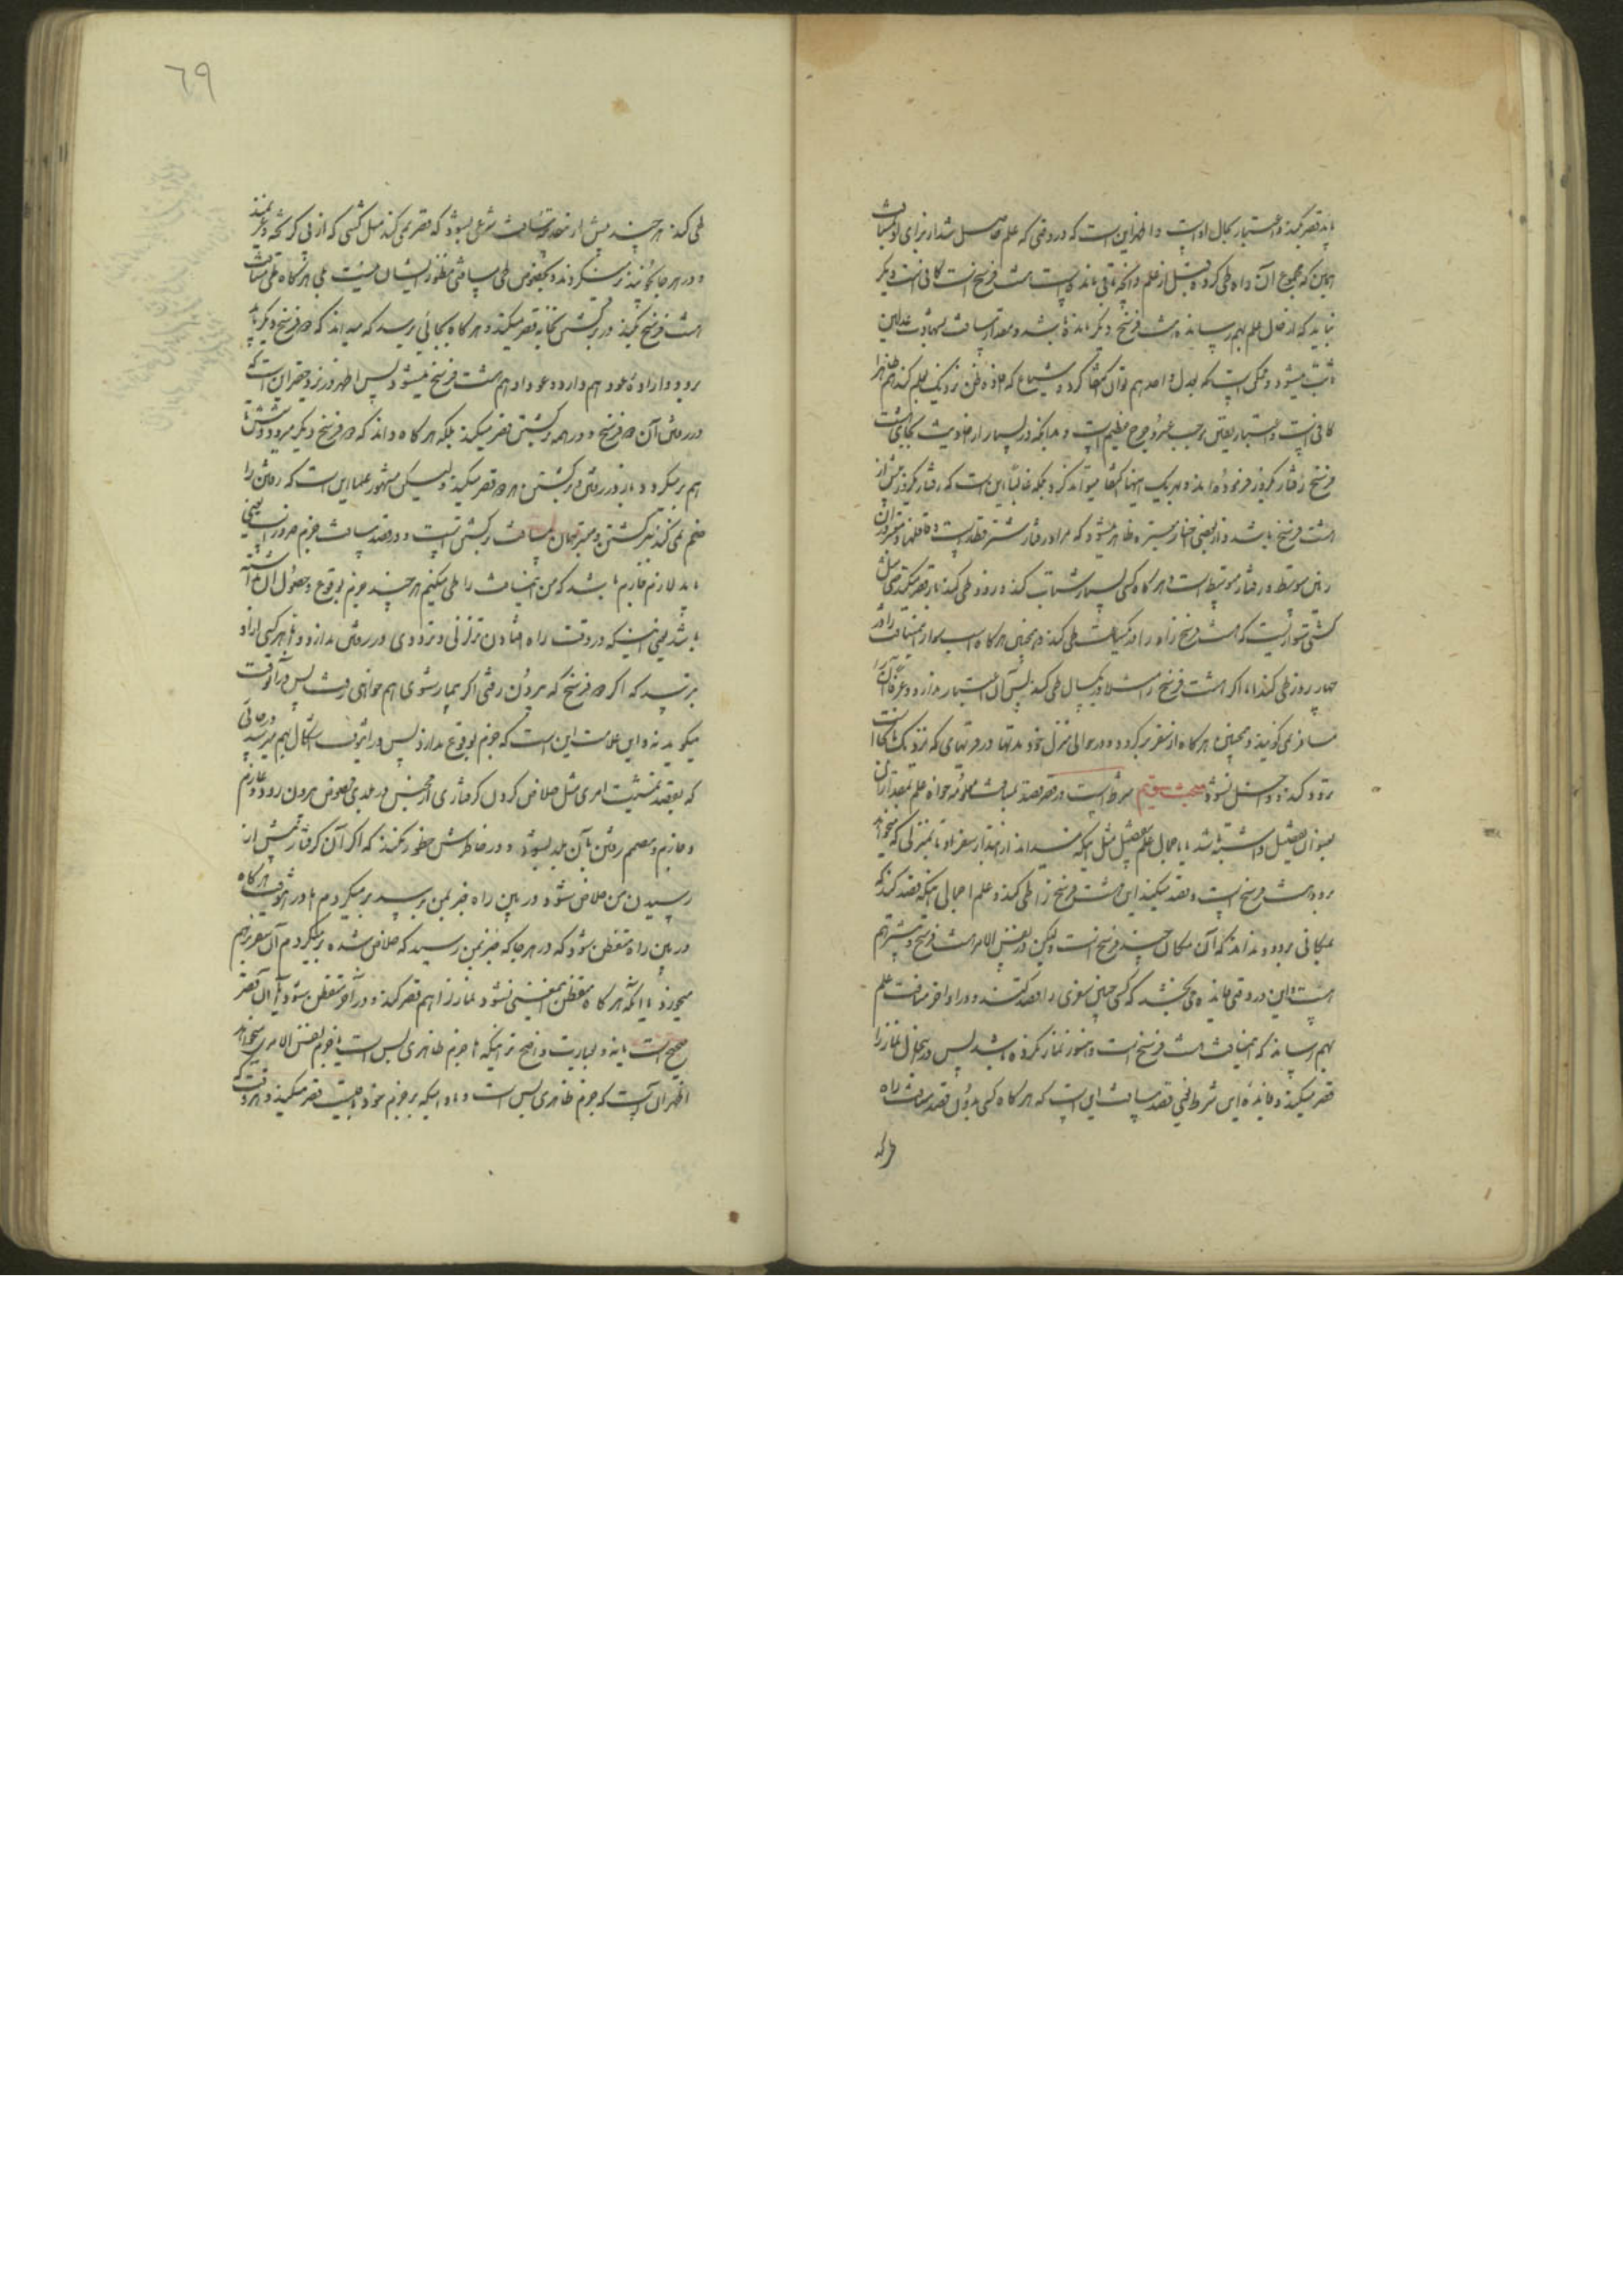 باید قصر کند و اعتبار بحال اوست و اظهر این است که در وقتی که علم حاصل شد از برای او مسافت
همین که مجموع آن راه طی کرده قبل از علم و آنچه باقی مانده است هشت فرسخ است کافی است و دیگر
نباید که از حال علم بهم رسانیده هشت فرسخ دیگر مانده باشد و مقدار مسافت بشهادت عدلین
ثابت میشود و ممکن است که بعدل واحد هم توان اکتفا کرد و شیاع که افاده ظن نزدیک بعلم کند هم
کافی است و اعتبار یقین موجب عسر و حرج عظیم است و هم آنکه در بسیار از احادیث بجای هشت
فرسخ رفتار یکروز فرموده‌اند و بهر یک اینها اکتفا میتواند کرد بلکه غالبا این است که رفتار یکروز بیش از
هشت فرسخ باشد و از بعضی اخبار معتبره ظاهر میشود که مراد رفتار شتر قطار است و قافلها و معتبر در آن
زمین متوسط و رفتار متوسط است و هر گاه کسی بسیار شتاب کند و دو روز طی کند باز قصر میکند حتی مثل
کشتی سوار نیست که هشت فرسخ راه را در یکساعت طی کند و همچنین هر گاه اینمسافت را در
چهار روز طی کند اما اگر هشت فرسخ را مثلا در یکسال طی کند پس آن اعتبار ندارد و عرفا آن را
مسافر نمیگویند و همچنین هر گاه از سفر برگردد و در حوالی منزل خود مدتها در قریهای که نزدیک بآنجا است
تردد کند و داخل نشود مبحث سیم شرط است در قصر قصد مسافت معلومه خواه علم بمقدار آن
بعنوان تفصیل داشته باشد یا باجمال علم تفصیل مثل اینکه میداند از ابتدای سفر او تا بمنزلی که میخواهد
برود هشت فرسخ است و قصد میکند این هشت فرسخ را طی کند و علم اجمالی اینکه قصد کند که
بمکانی برود و نداند که آن مکان چند فرسخ است و لیکن در نفس الامر هشت فرسخ و بیشتر هم
است و این در وقتی فایده می‌بخشد که کسی چنین سفری را قصد کند و در اواخر مسافت علم
بهم رساند که اینمسافت هشت فرسخ است و هنوز نماز نکرده باشد پس در اینحال نماز را
قصر میکند و فایده این شرط یعنی قصد مسافت این است که هر گاه کسی بدون قصد مسافت راه
طی کند هر چند بیش از مقدار مسافت شرعی بشود که قصر نمی کند مثل کسی که از پی گریخته و غیر آن
و در هر جا که یابند بر میگردند و بخصوص طی مسافتی منظور ایشان نیست بلی هر گاه طی مسافت
هشت فرسخ کنند در برگشتن بخانه قصر میکند و هر گاه بجائی برسد که میداند که دو فرسخ دیگر باید
برود و اراده عود هم دارد و عود او هم هشت فرسخ میشود پس اظهر در نزد حقیر این است که
در رفتن آن دو فرسخ و در همه برگشتن قصر میکند بلکه هر گاه داند که دو فرسخ دیگر میرود
هم بر میگردد باز در رفتن و برگشتن هر دو قصر میکند و لیکن مشهور علما این است که رفتن را
ضم نمی کند ببرگشتن و معتبر همان مسافت برگشتن است و در قصد مسافت جزم ضرور نیست یعنی
باید لازم جازم باشد که من اینمسافت را طی میکنم هر چند جزم بوقوع و حصول آن نداشته
باشد یعنی اینکه در وقت راه افتادن تزلزلی و ترددی در رفتن ندارد و اما هر گاه کسی از او
بپرسد که اگر دو فرسخ که بیرون رفتی اگر بیمار شوی هم خواهی رفت پس در آنوقت
میگوید نه و این علامت این است که جزم بوقوع ندارد پس در اینوقت اشکال بهم میرسد در جائی
که بقصد تمشیت امری مثل خلاص کردن گرفتاری از محبس در بلدی بخصوص بیرون رود و عازم
و جازم و مصمم رفتن بآن بلد بشود و در خاطرش خطور نکند که اگر آن گرفتار پیش از
رسیدن من خلاص شود و در بین راه خبر بمن برسد بر میگردم یا در اینوقت هر گاه
در بین راه متفطن شود که در هر جا که خبر بمن رسید که خلاص شده بر میگردم آن سفر بر هم
میخورد یا آنکه هر گاه متفطن اینمعنی نشود نماز را هم قصر کند و در آخر متفطن شود آیا آن قصر
صحیح است یا نه و بعبارت واضح تر اینکه آیا جزم ظاهری بس است یا جزم نفس الامری میخواهد
اظهر آن است که جزم ظاهری بس است و مادامیکه بر جزم خود باقیست قصر میکند و هر وقت که